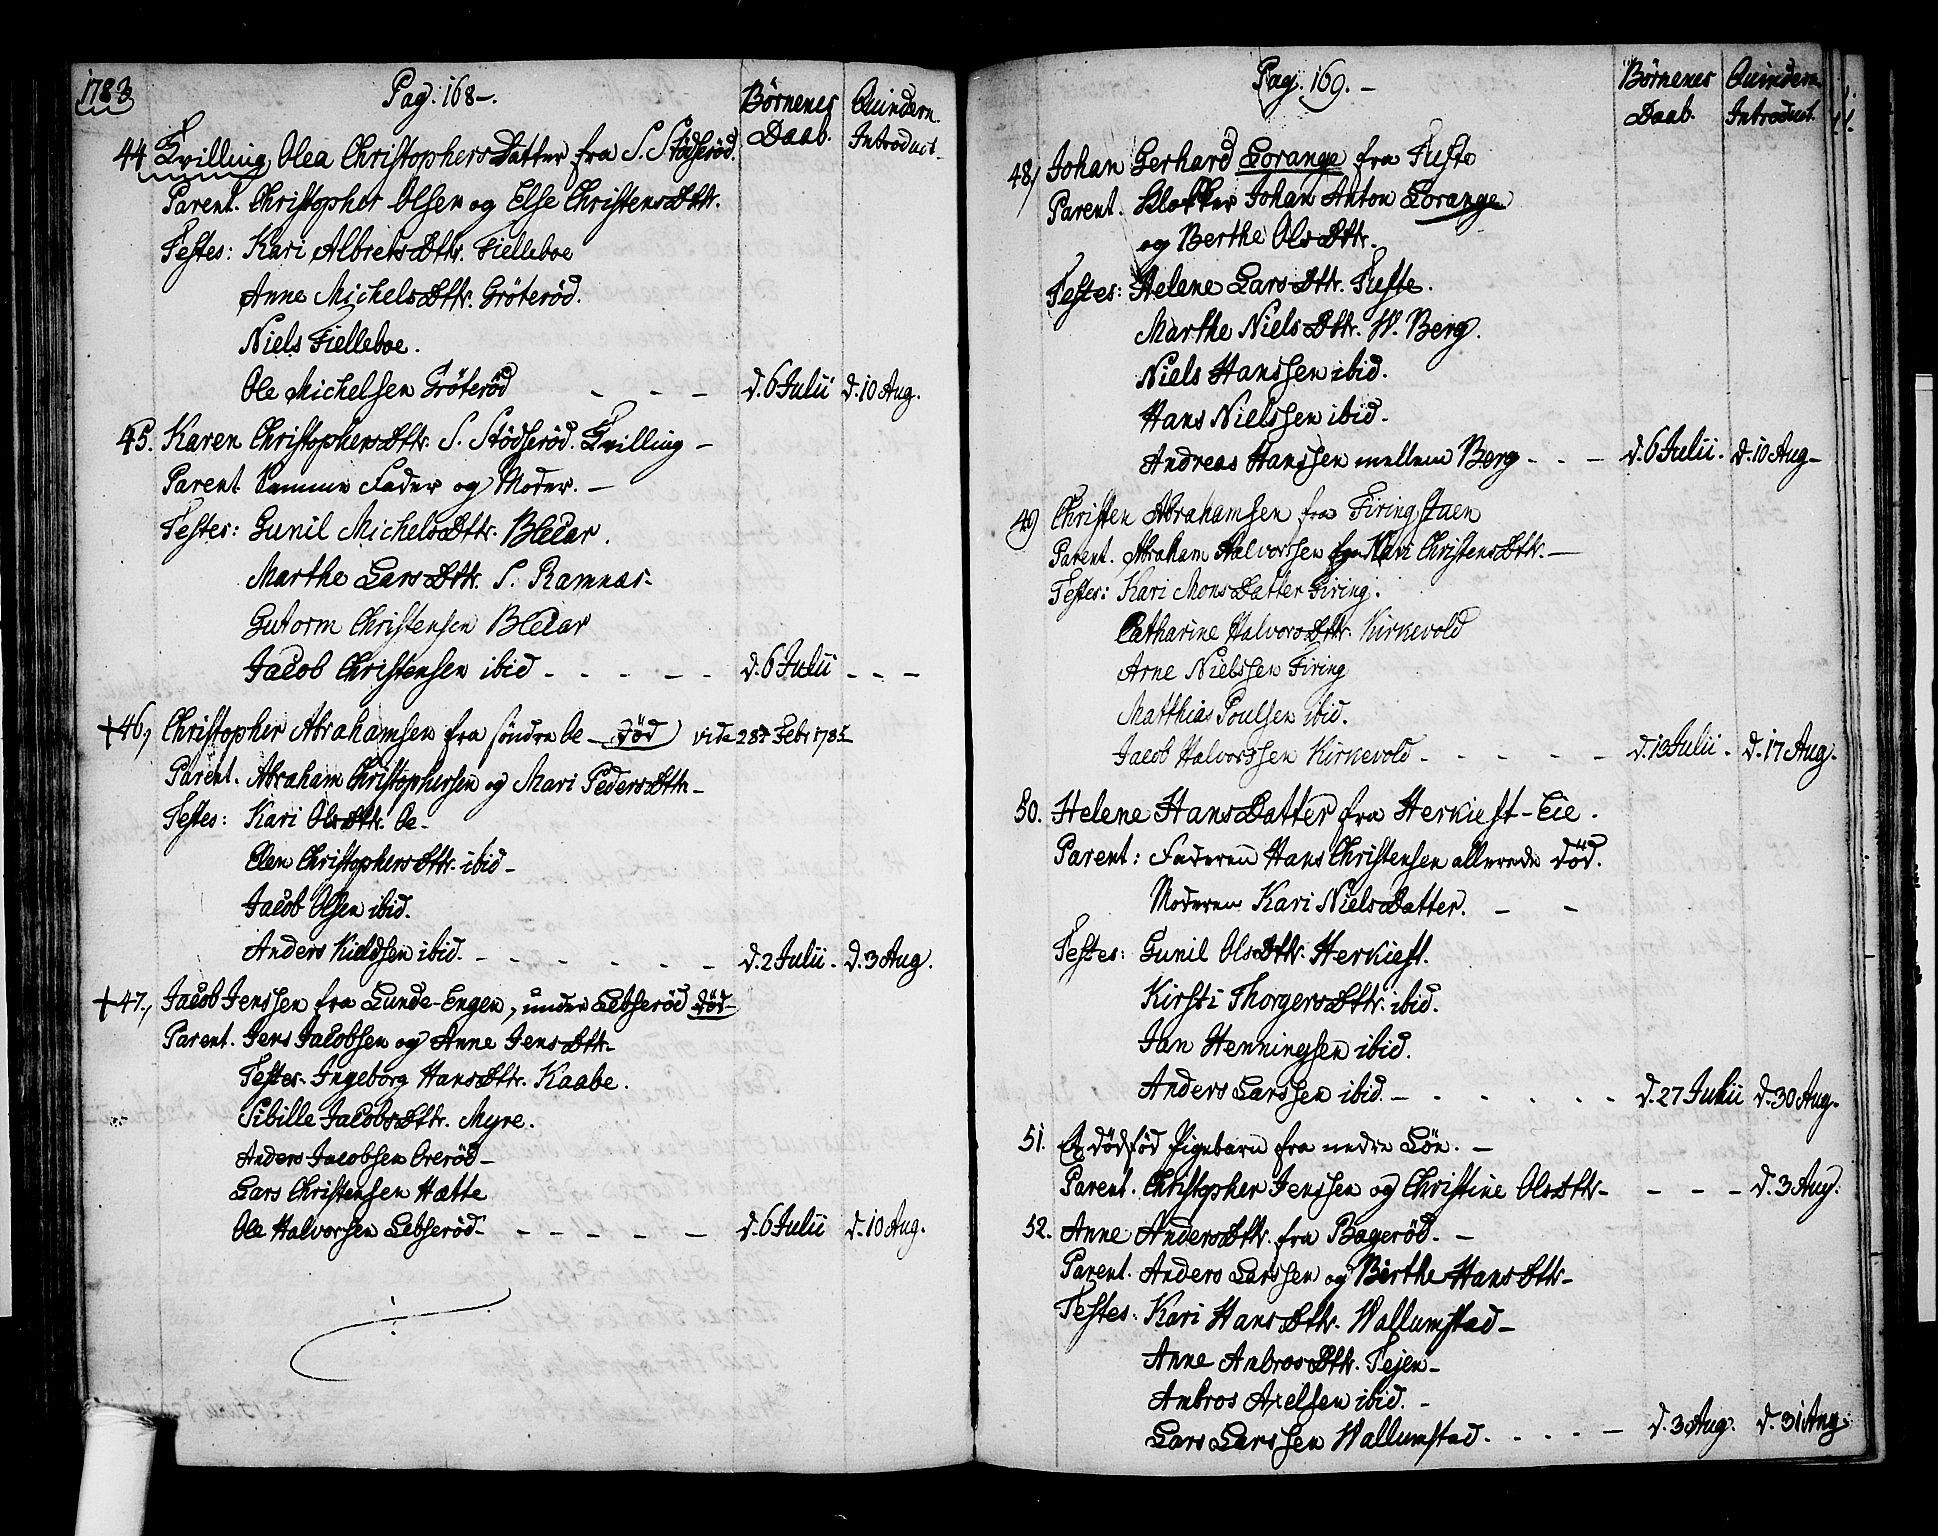 1783
Pag. 168-.
Børnenes Daab.
Quindern. Introduct.
44 Tvilling, Olea ChristophersDatter fra S. Stödseröd.
Parent. Christopher Olsen og Else ChristensDttr.
Testes: Kari AlbretsDttr. Fielleboe
Anne MichelsDttr. Gröteröd.
Niels Fielleboe.
Ole Michelsen Gröteröd - - - d. 6 Julii d. 10 Aug.
45. Karen ChristophersDttr. S. Stödseröd. Tvilling -
Parent Samme Fader og Moder. -
Testes: Gunil MichelsDttr. Blecar.
Marthe LarsDttr. S. Ramnas-
Gutorm Christensen Blecar
Jacob Christensen ibid - - - - - d. 6 Julii - - -
+46, Christopher Abrahamsen fra söndre Oe - död) vide 28d Febr 1785
Parent. Abraham Christophersen og Mari PedersDttr-
Testes: Kari OlsDttr. Oe-
Elen ChristophersDttr. ibid-
Jacob Olsen ibid.
Anders Kieldsen ibid. - - - - - - - d. 2 Julii. d. 3 Aug.
+47., Jacob Jenssen fra Lunde-Engen, under Lebseröd död-
Parent. Jens Jacobsen og Anne JensDttr-
Testes. Ingeborg HansDttr. Kaabe.
Sibille JacobsDttr. Myre.
Anders Jacobsen Oreröd-
Lars Christensen Hætte
Ole Halvorsen Lebseröd- - - - - - d. 6 Julii d. 10 Aug.
Pag. 169. -
Børnenes Daab.
Quindern. Introduct.
48, Johan Gerhard Lorange fra Tufte
Parent. Klokker Johan Anton Lorange
og Berthe OlsDttr.
Testes: Helene LarsDttr. Tufte.
Marthe NielsDttr. W. Berg.
Niels Hanssen ibid.
Hans Nielssen ibid.
Andreas Hanssen mellem Berg - - - d. 6 Julii. d. 10 Aug-
49 Christen Abrahamsen fra Firingstaen
Parent. Abraham Halvorssen og Kari ChristensDttr. -
Testes: Kari MonsDatter Firing.
Catharine HalvorsDttr. Kirkevold
Arne Nielssen Firing
Matthias Poulsen ibid.
Jacob Halvorssen Kirkevold - - - - - d. 13 Julii. d. 17 Aug.
50. Helene HansDatter fra Herkieft-Eie.
Parent: Faderen Hans Christensen allerede död.
Moderen Kari NielsDatter. - -
Testes: Gunil OlsDttr. Herkieft.
Kirsti ThorgersDttr. ibid.
Jan Henningsen ibid.
Anders Larssen ibid. - - - - - - - d. 27 Julii d. 30 Aug.
51. Et dödfød Pigebarn fra nedre Lön. -
Parent. Christopher Jenssen og Christine OlsDttr- - - - d. 3 Aug.
52. Anne AndersDttr. fra Bageröd. -
Parent. Anders Larssen og Birthe HansDttr-
Testes: Kari HansDttr. Wallumstad-
Anne AmbrosDttr. Tejen-
Ambros Axelsen ibid. -
Lars Larssen Wallumstad. - - - - - d. 3 Aug. d. 31 Aug.